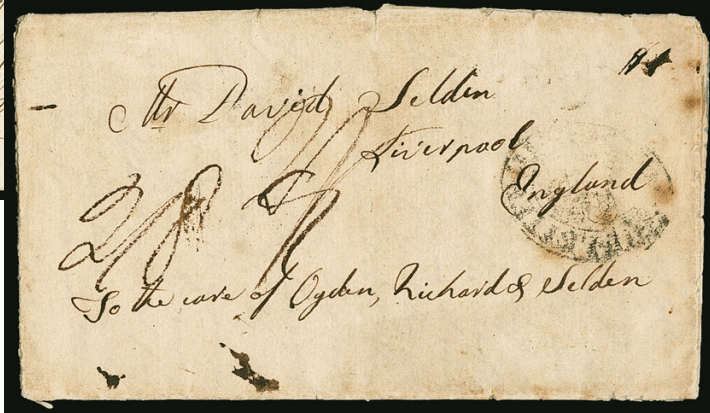 Mr David Selden
Liverpool
England
2/8
To the care of Ogden, Richard & Selden